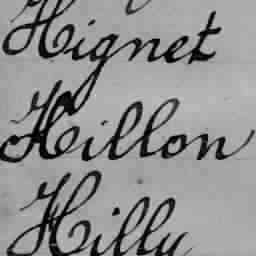 Hignet
Hillon
Hilly